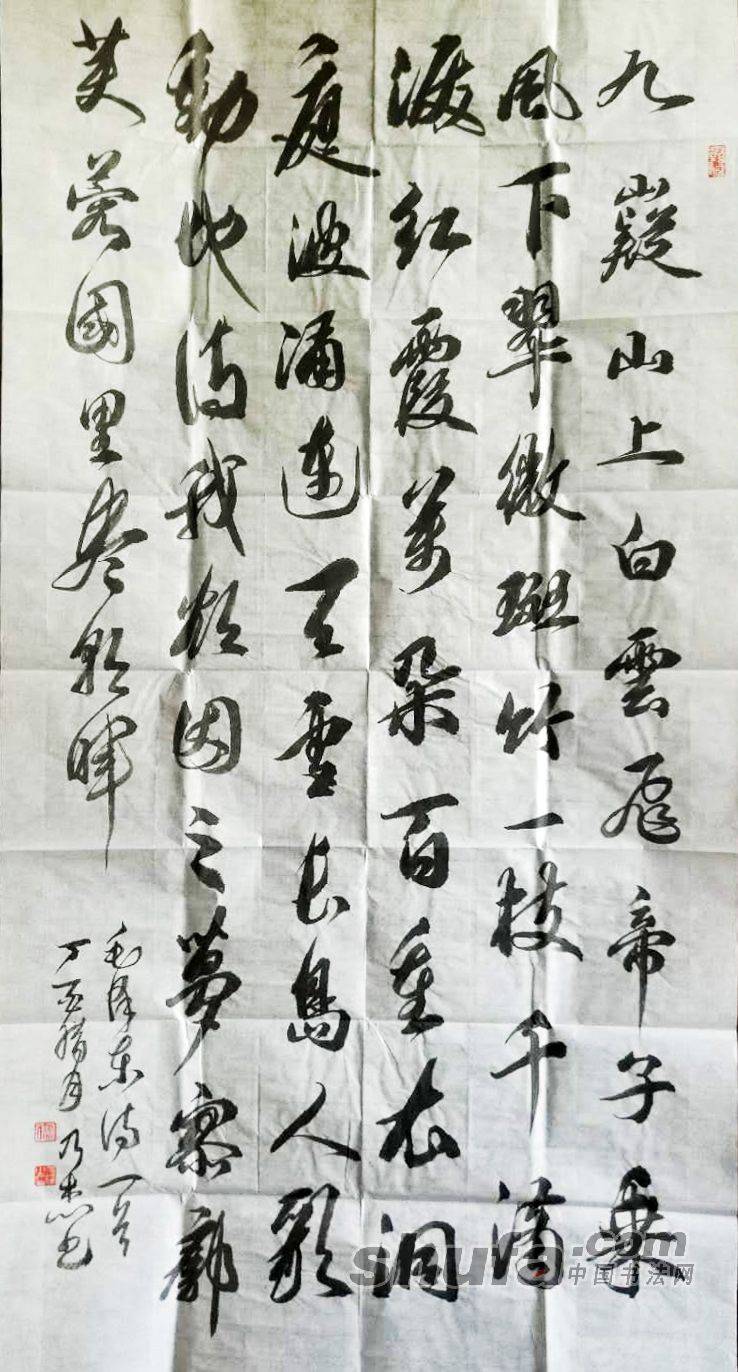 九嶷山上白雲飛帝子乘
風下翠微斑竹一枝千滴
淚紅霞萬朵百重衣洞
庭波涌連天雪長島人歌
動地詩我欲因之夢寥廓
芙蓉國里盡朝暉
毛澤東詩一首
丁酉腊月乃书
shufa.com
中国书法网